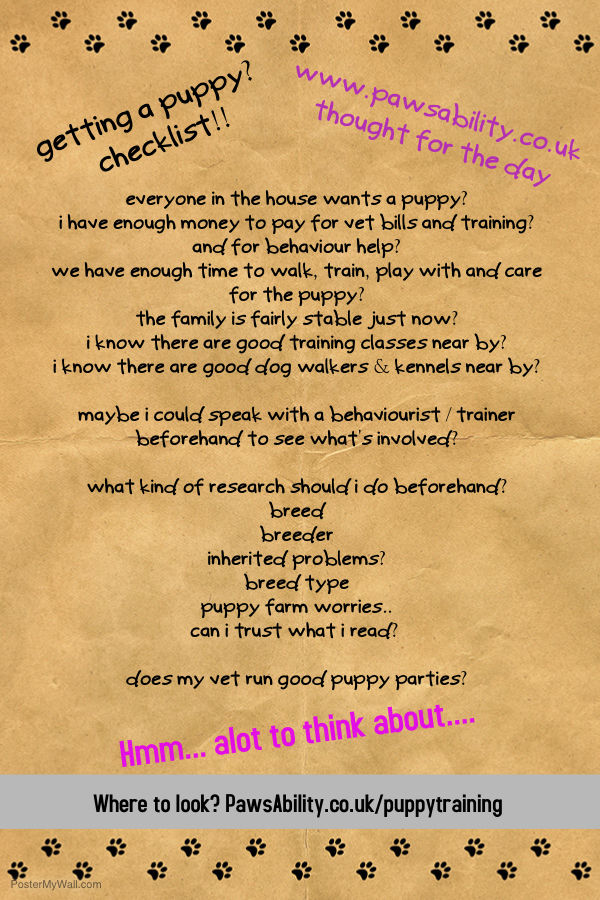 getting a puppy?
checklist!!
www.pawsability.co.uk
thought for the day
everyone in the house wants a puppy?
i have enough money to pay for vet bills and training?
and for behaviour help?
we have enough time to walk, train, play with and care
for the puppy?
the family is fairly stable just now?
i know there are good training classes near by?
i know there are good dog walkers & kennels near by?
maybe i could speak with a behaviourist / trainer
beforehand to see what's involved?
what kind of research should i do beforehand?
breed
breeder
inherited problems?
breed type
puppy farm worries..
can i trust what i read?
does my vet run good puppy parties?
Hmm... alot to think about....
Where to look? PawsAbility.co.uk/puppytraining
PosterMyWall.com